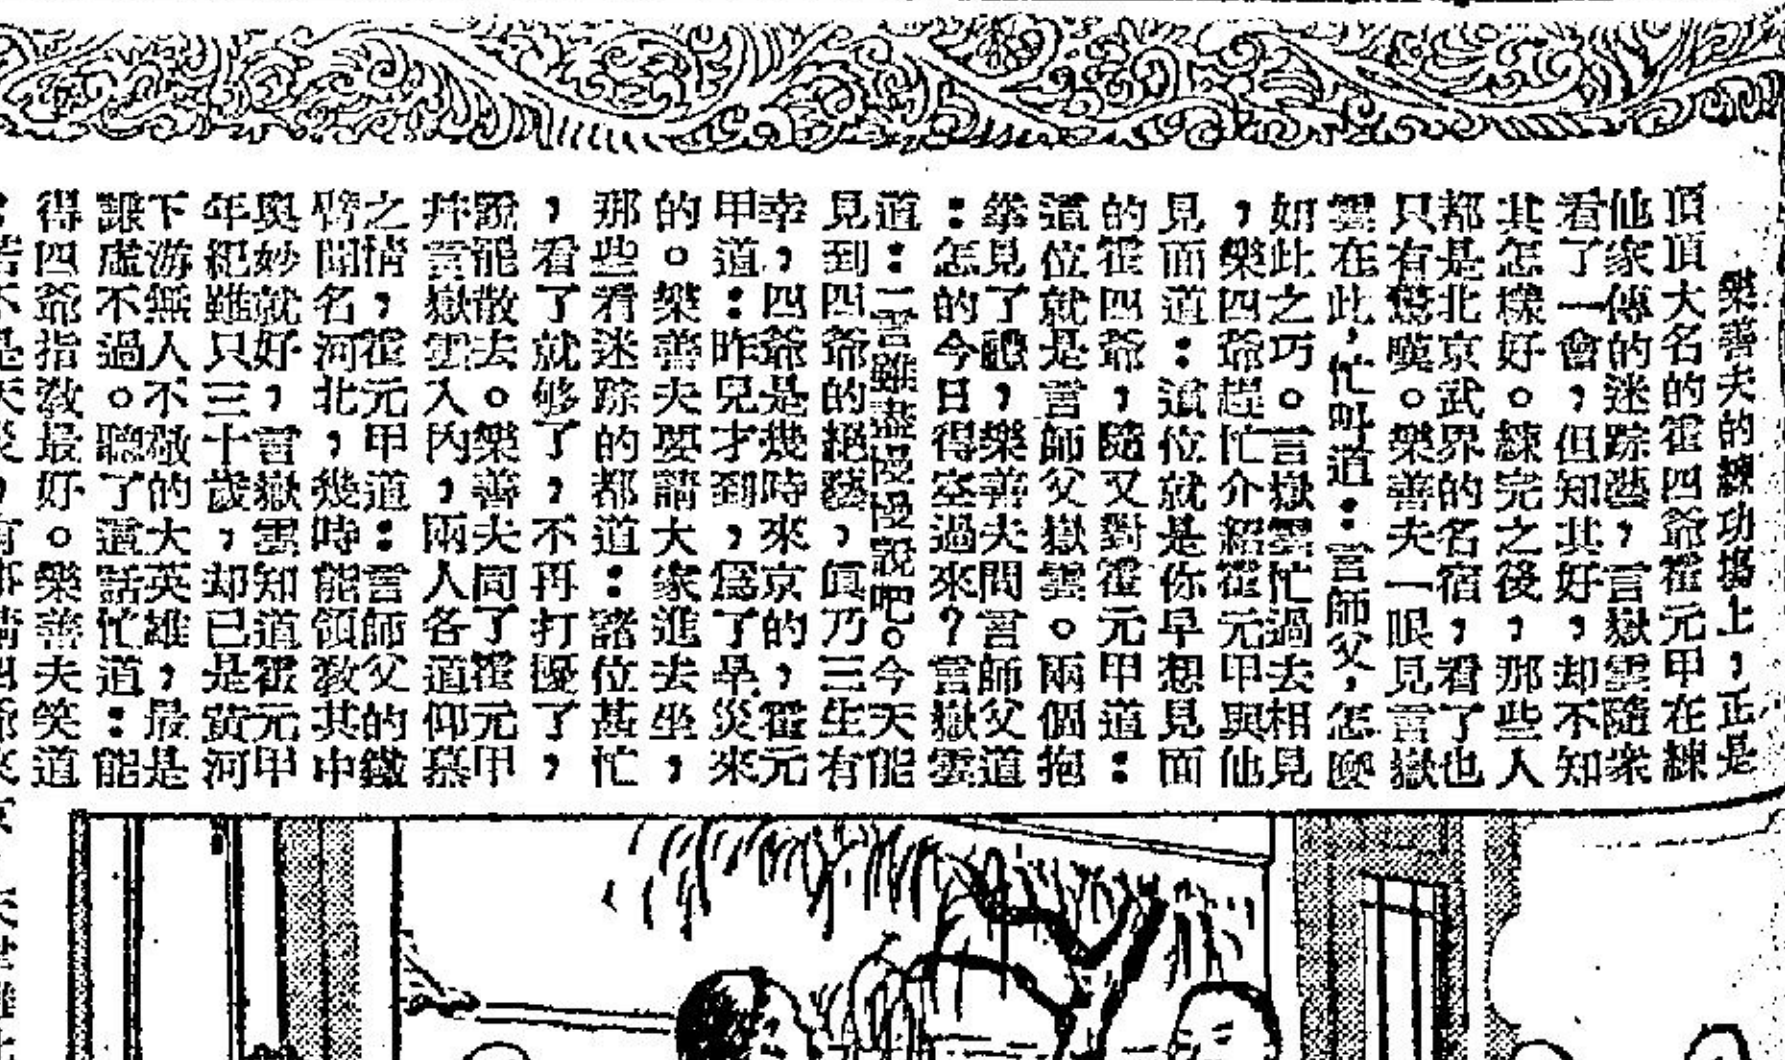 樂善夫的練功場上，正是
頂頂大名的霍四爺霍元甲在練
他家傳的迷踪藝，言嶽雲隨衆
看了一會，但知其好，却不知
其怎樣好。練完之後，那些人
都是北京武界的名宿，看了也
只有驚嘆。樂善夫一眼見言嶽
雲在此，忙叫道：言師父，怎麽
如此之巧。言嶽雲忙過去相見
，樂四爺趕忙介紹霍元甲與他
見面道：這位就是你早想見面
的霍四爺，隨又對霍元甲道：
這位就是言師父嶽雲。兩個抱
拳見了禮，樂善夫問言師父道
：怎的今日得空過來？言嶽雲
道：一言難盡慢慢說吧。今天能
見到四爺的絕藝，眞乃三生有
幸，四爺是幾時來京的，霍元
甲道：昨兒才到，爲了旱災來
的。樂善夫要請大家進去坐，
那些看迷踪的都道：諸位甚忙
，看了就够了，不再打擾了，
說能散去。樂善夫同了霍元甲，
幷言嶽雲入內，兩人各道仰慕
之情，霍元甲道：言師父的鐵
臂聞名河北，幾時能領教其中
奥妙就好，言嶽雲知道霍元甲
年紀雖只三十歲，却已是黃河
下游無人不敬的大英雄，最是
謙虛不過。聽了這話忙道：能
得四爺指教最好。樂善夫笑道